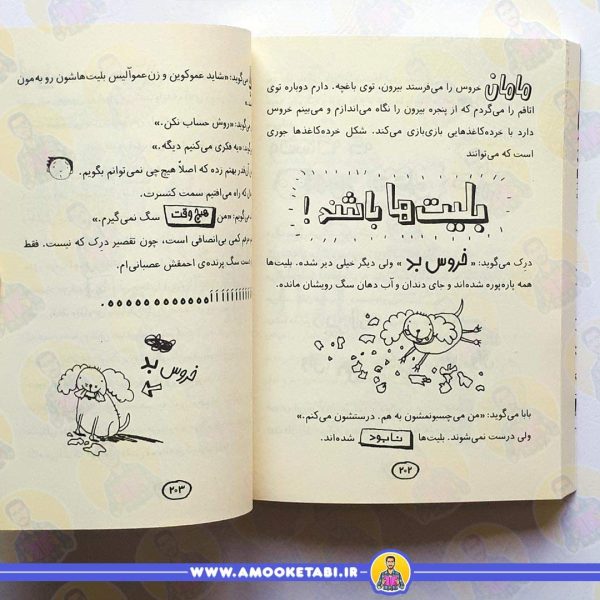 مامان خروس را می‌فرستد بیرون، توی باغچه. دارم دوباره توی
اتاقم را می‌گردم که از پنجره بیرون را نگاه می‌اندازم و می‌بینم خروس
دارد با خرده‌کاغذهایی بازی‌بازی می‌کند. شکل خرده‌کاغذها جوری
است که می‌توانند
بلیت‌ها باشند!
درک می‌گوید: «خروس بد» ولی دیگر خیلی دیر شده. بلیت‌ها
همه پاره‌پوره شده‌اند و جای دندان و آب دهان سگ رویشان مانده.
بابا می‌گوید: «من می‌چسبونمشون به هم. درستشون می‌کنم.»
ولی درست نمی‌شوند. بلیت‌ها نابود شده‌اند.
۲۰۲
می‌گوید: «شاید عموکوین و زن‌عموآلیس بلیت‌هاشون رو به‌مون
می‌گوید: «روش حساب نکن.»
«یه فکری می‌کنیم دیگه.»
بهتم زده که اصلاً هیچ‌چی نمی‌توانم بگویم.
که راه می‌افتیم سمت کنسرت.
می‌گویم: «من هیچ‌وقت سگ نمی‌گیرم.»
کمی بی‌انصافی است، چون تقصیر درک که نیست. فقط
دست سگ پرنده‌ی احمقش عصبانی‌ام.
خروس بد
۲۰۳
WWW.AMOOKETABI.IR